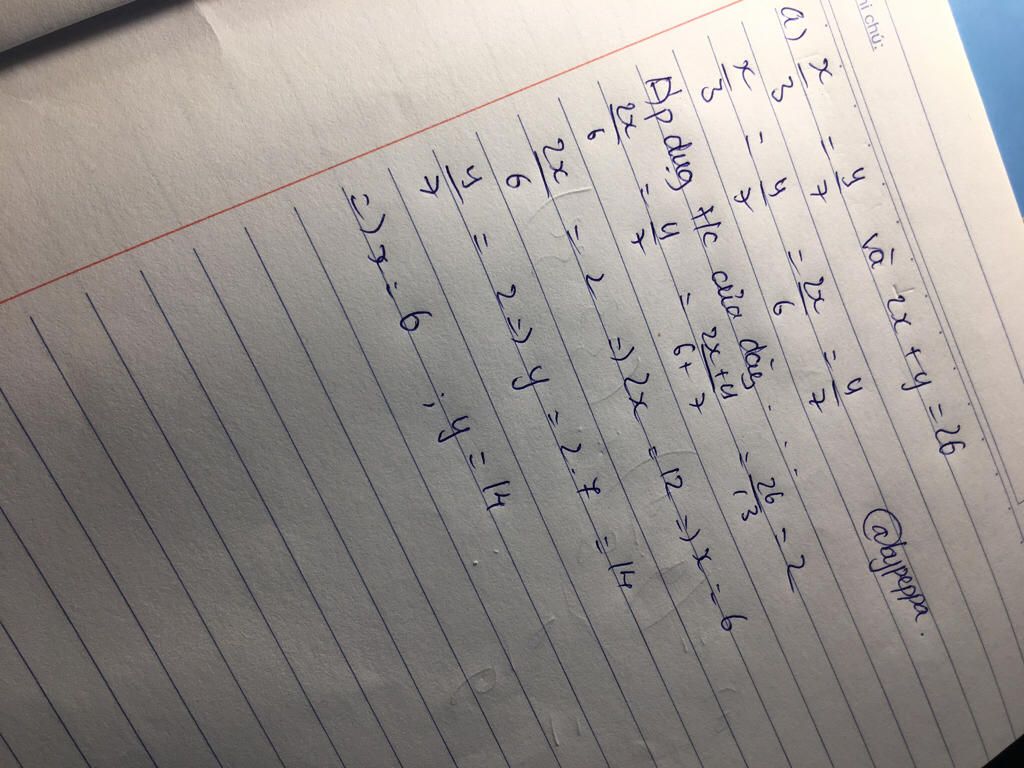 hi chú:
a) x/3 = y/7 và 2x + y = 26
@typeppa.
x/3 = y/7 = 2x/6 = y/7
Áp dụng t/c của dãy . . .
2x/6 = y/7 = 2x+y/6+7 = 26/13 = 2
2x/6 = 2 => 2x = 12 => x = 6
y/7 = 2 => y = 2.7 = 14
=) x = 6 ; y = 14